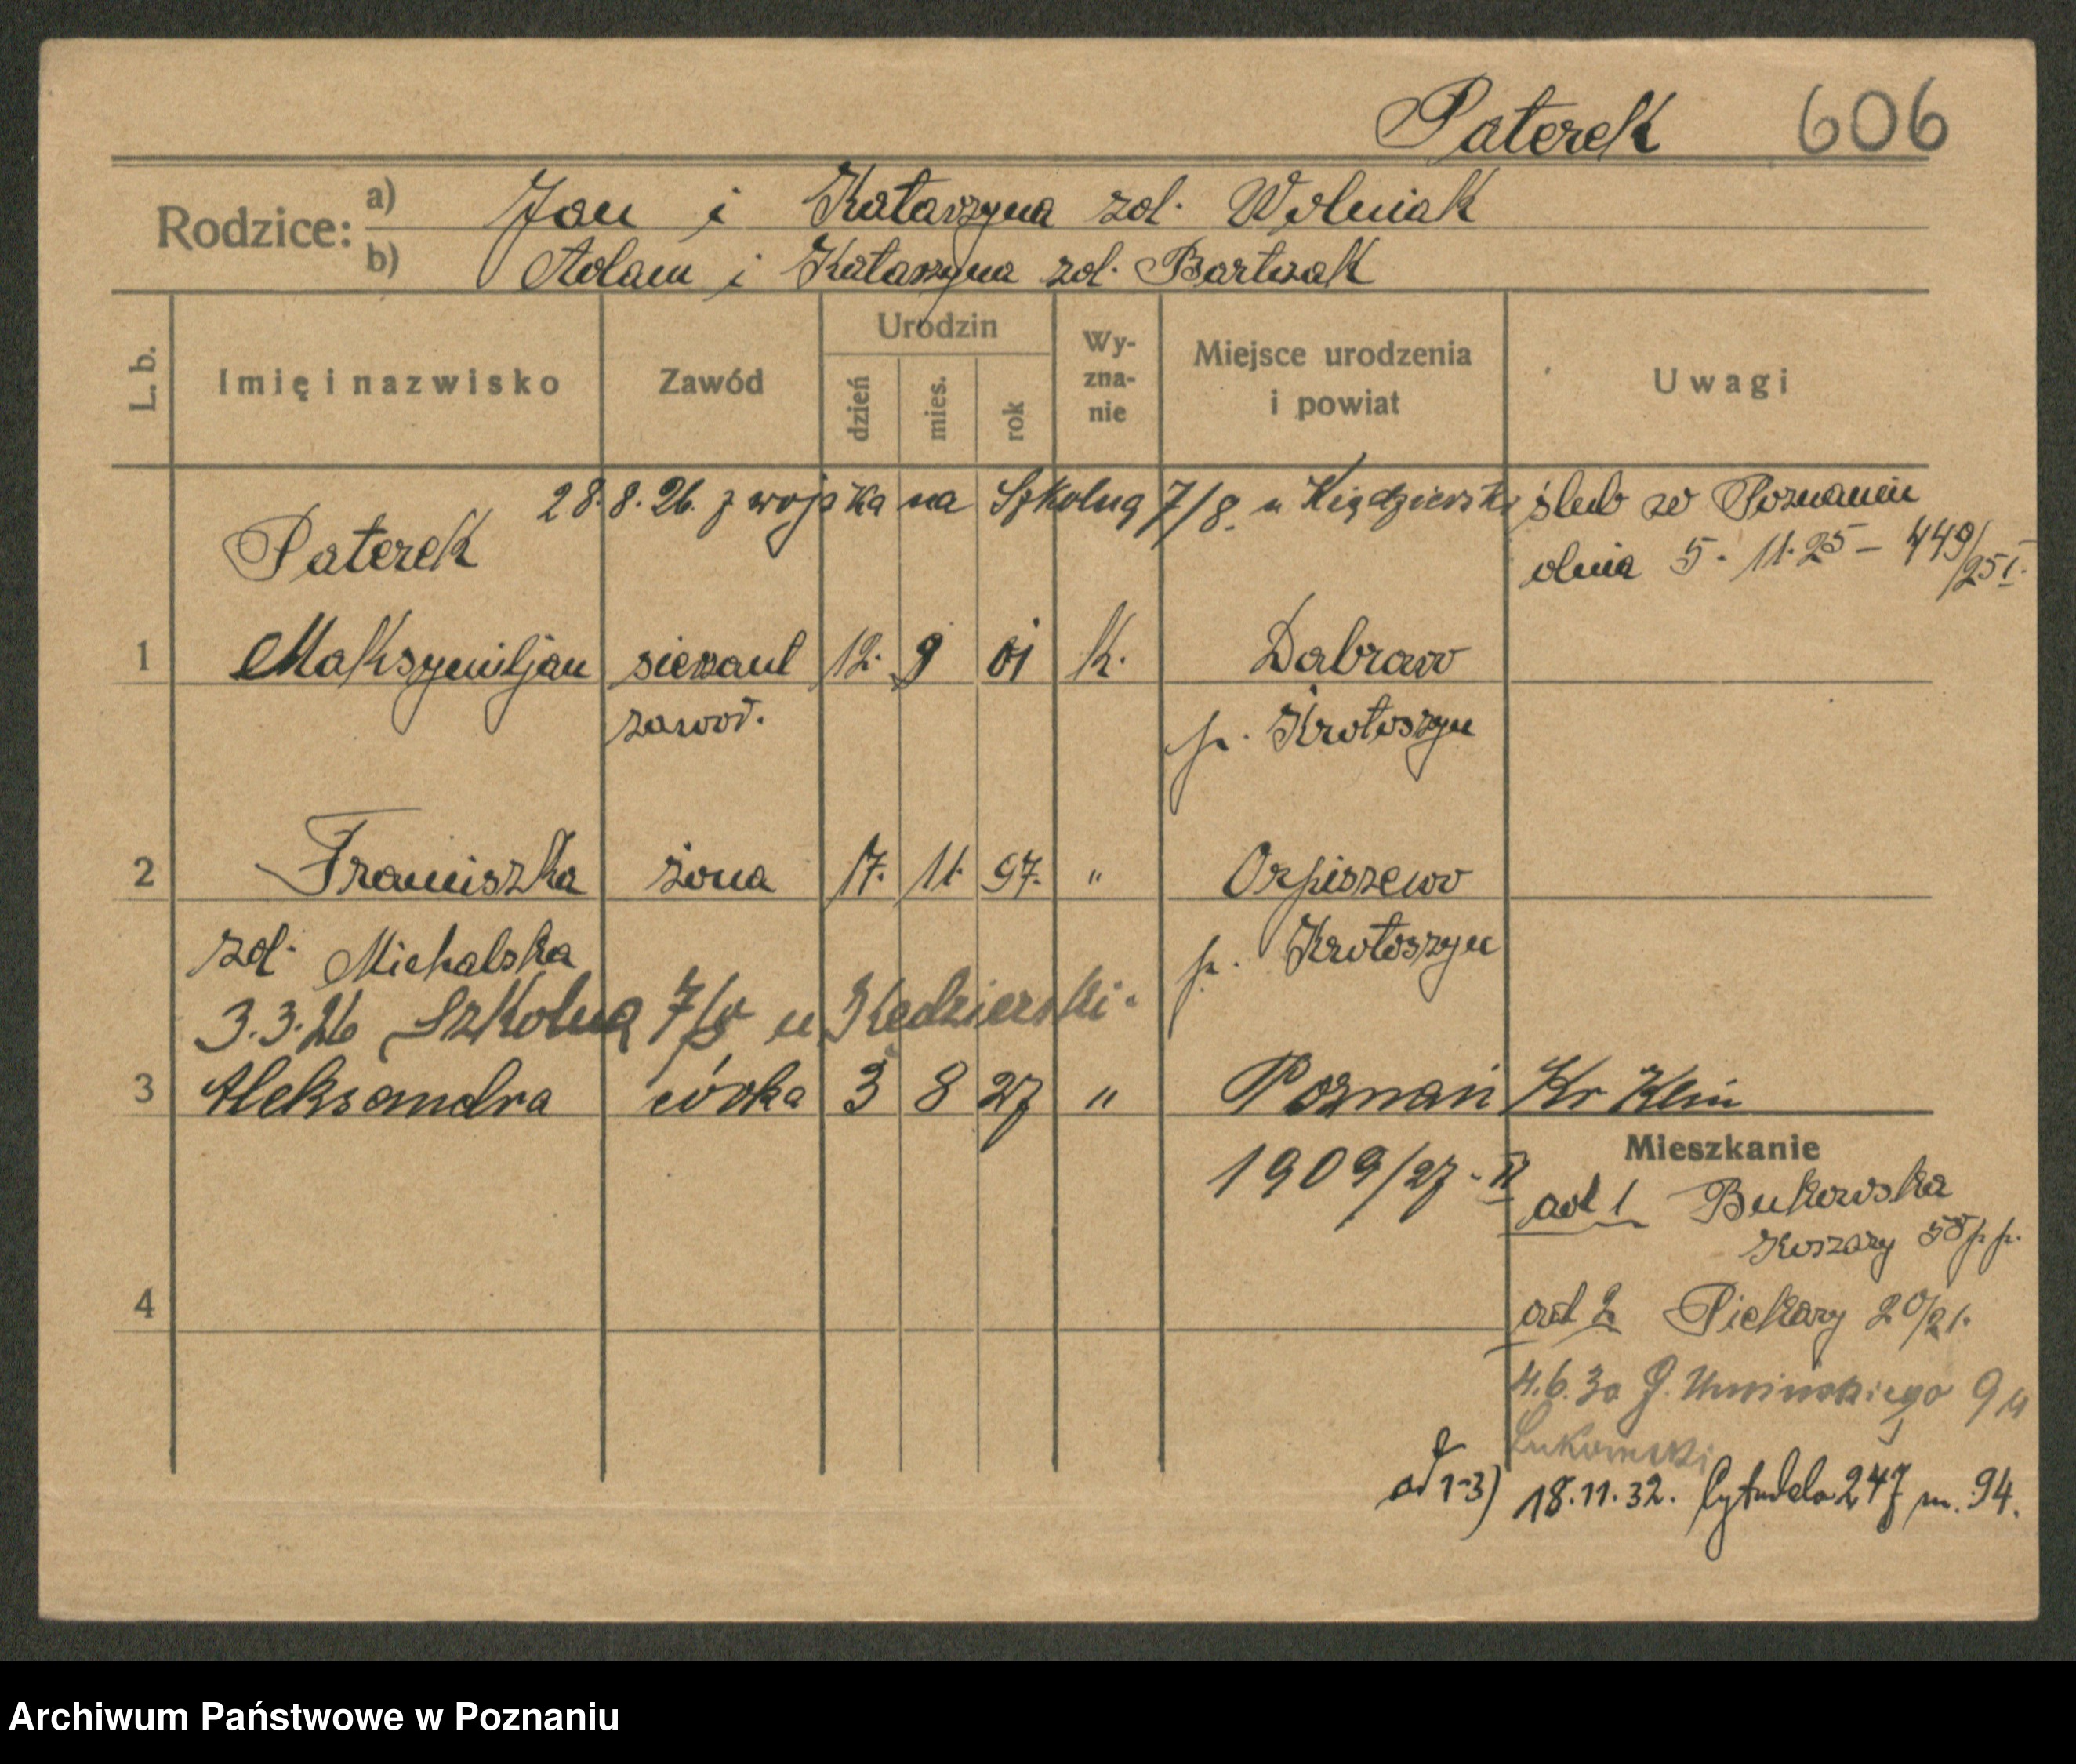 Paterek 606
Rodzice: a) Jan i Katarzyna zd. Wolniak
b) Adam i Katarzyna zd. Bartczak
L. b. Imię i nazwisko Zawód Urodzin dzień mies. rok Wy-zna-nie Miejsce urodzenia i powiat Uwagi
28.8.26. z wojska na Szkolną 7/8. u
ślub w Poznaniu
Paterek
dnia 5. 11. 25 – 449/25 I.
1 Maksymiljan sierżant 12. 9 01 k. Dabrow
zawod. p. Krotoszyn
2 Franciszka żona 17. 11. 97. " Orpiszewo
zd. Michalska p. Krotoszyn
3.3.26 Szkolna 7/8 u Kędzierski.
3 Aleksandra córka 3 8 27 " Poznań Kr Klin
1909/27 - II
Mieszkanie
ad 1 Bukowska
Koszary 58 p. p.
ad 2 Piekary 20/21.
4
4.6.30 G. Umińskiego 9
Łukomski
ad 1-3) 18.11.32. Cytadela 247 m. 94.
Archiwum Państwowe w Poznaniu